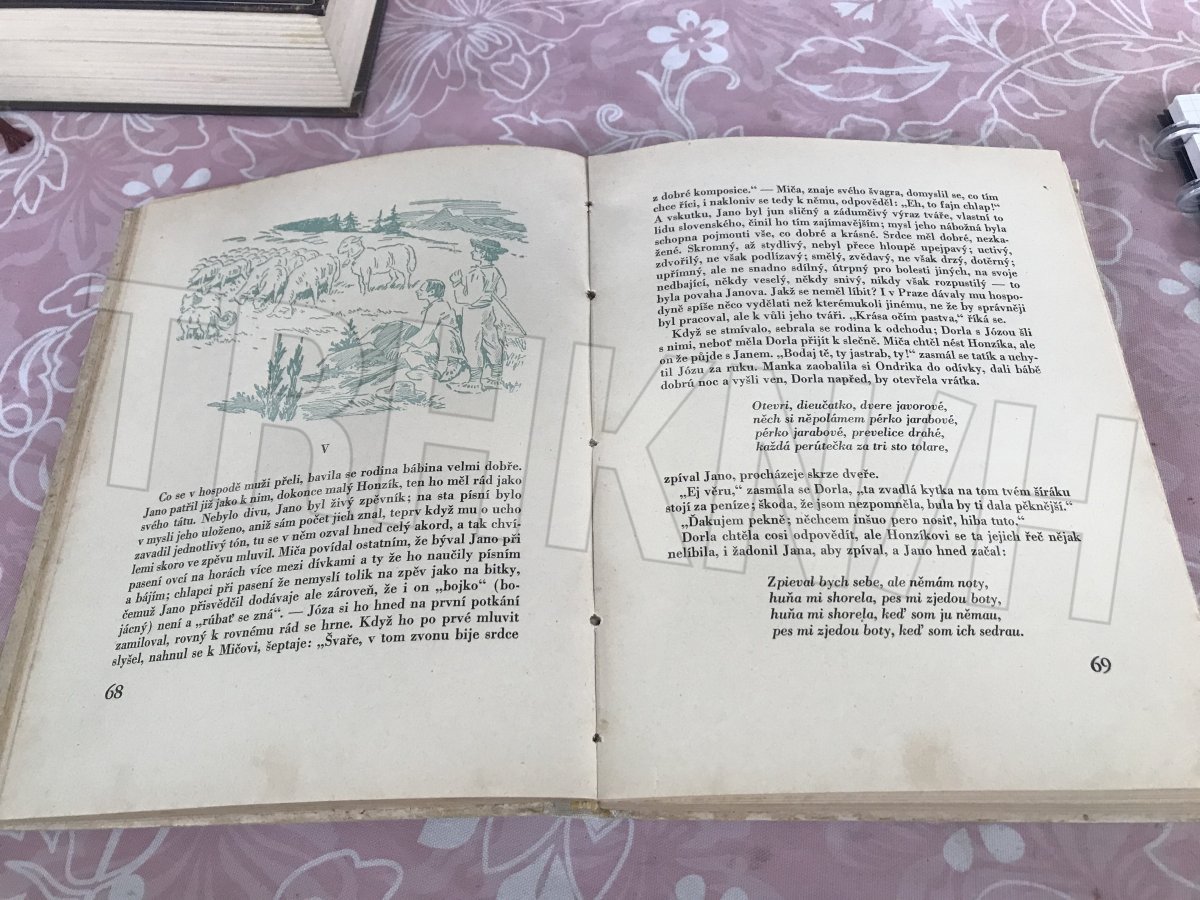 V
Co se v hospodě muži přeli, bavila se rodina bábina velmi dobře.
Jano patřil již jako k nim, dokonce malý Honzík, ten ho měl rád jako
svého tátu. Nebylo divu, Jano byl živý zpěvník; na sta písní bylo
v mysli jeho uloženo, aniž sám počet jich znal, teprv když mu o ucho
zavadil jednotlivý tón, tu se v něm ozval hned celý akord, a tak chví-
lemi skoro ve zpěvu mluvil. Miča povídal ostatním, že býval Jano při
pasení ovcí na horách více mezi dívkami a ty že ho naučily písním
a bájím; chlapci při pasení že nemyslí tolik na zpěv jako na bitky,
čemuž Jano přisvědčil dodávaje ale zároveň, že i on „bojko“ (bo-
jácný) není a „rúbať se zná“. — Józa si ho hned na první potkání
zamiloval, rovný k rovnému rád se hrne. Když ho po prvé mluvit
slyšel, nahnul se k Mičovi, šeptaje: „Švaře, v tom zvonu bije srdce
68
z dobré komposice.“ — Miča, znaje svého švagra, domyslil se, co tím
chce říci, i nakloniv se tedy k němu, odpověděl: „Eh, to fajn chlap!“
A vskutku, Jano byl jun sličný a zádumčivý výraz tváře, vlastní to
lidu slovenského, činil ho tím zajímavějším; mysl jeho nábožná byla
schopna pojmouti vše, co dobré a krásné. Srdce měl dobré, nezka-
žené. Skromný, až stydlivý, nebyl přece hloupě upejpavý; uctivý,
zdvořilý, ne však podlízavý; smělý, zvědavý, ne však drzý, dotěrný;
upřímný, ale ne snadno sdílný, útrpný pro bolesti jiných, na svoje
nedbající, někdy veselý, někdy snivý, nikdy však rozpustilý — to
byla povaha Janova. Jakž se neměl líbit? I v Praze dávaly mu hospo-
dyně spíše něco vydělati než kterémukoli jinému, ne že by správněji
byl pracoval, ale k vůli jeho tváři. „Krása očím pastva,“ říká se.
Když se stmívalo, sebrala se rodina k odchodu; Dorla s Józou šli
s nimi, neboť měla Dorla přijít k slečně. Miča chtěl nést Honzíka, ale
on že půjde s Janem. „Bodaj tě, ty jastrab, ty!“ zasmál se tatík a uchy-
til Józu za ruku. Manka zaobalila si Ondrika do odívky, dali bábě
dobrú noc a vyšli ven, Dorla napřed, by otevřela vrátka.
Otevri, dieučatko, dvere javorové,
něch si něpolámem pérko jarabové,
pérko jarabové, prevelice drahé,
každá perútečka za tri sto tolare,
zpíval Jano, procházeje skrze dveře.
„Ej věru,“ zasmála se Dorla, „ta zvadlá kytka na tom tvém šíráku
stojí za peníze; škoda, že jsom nezpomněla, bula by ti dala pěknější.“
„Ďakujem pekně; něchcem inšuo pero nosiť, hiba tuto.“
Dorla chtěla cosi odpovědít, ale Honzíkovi se ta jejich řeč nějak
nelíbila, i žadonil Jana, aby zpíval, a Jano hned začal:
Zpieval bych sebe, ale němám noty,
huňa mi shorela, pes mi zjedou boty,
huňa mi shorela, keď som ju němau,
pes mi zjedou boty, keď som ich sedrau.
69